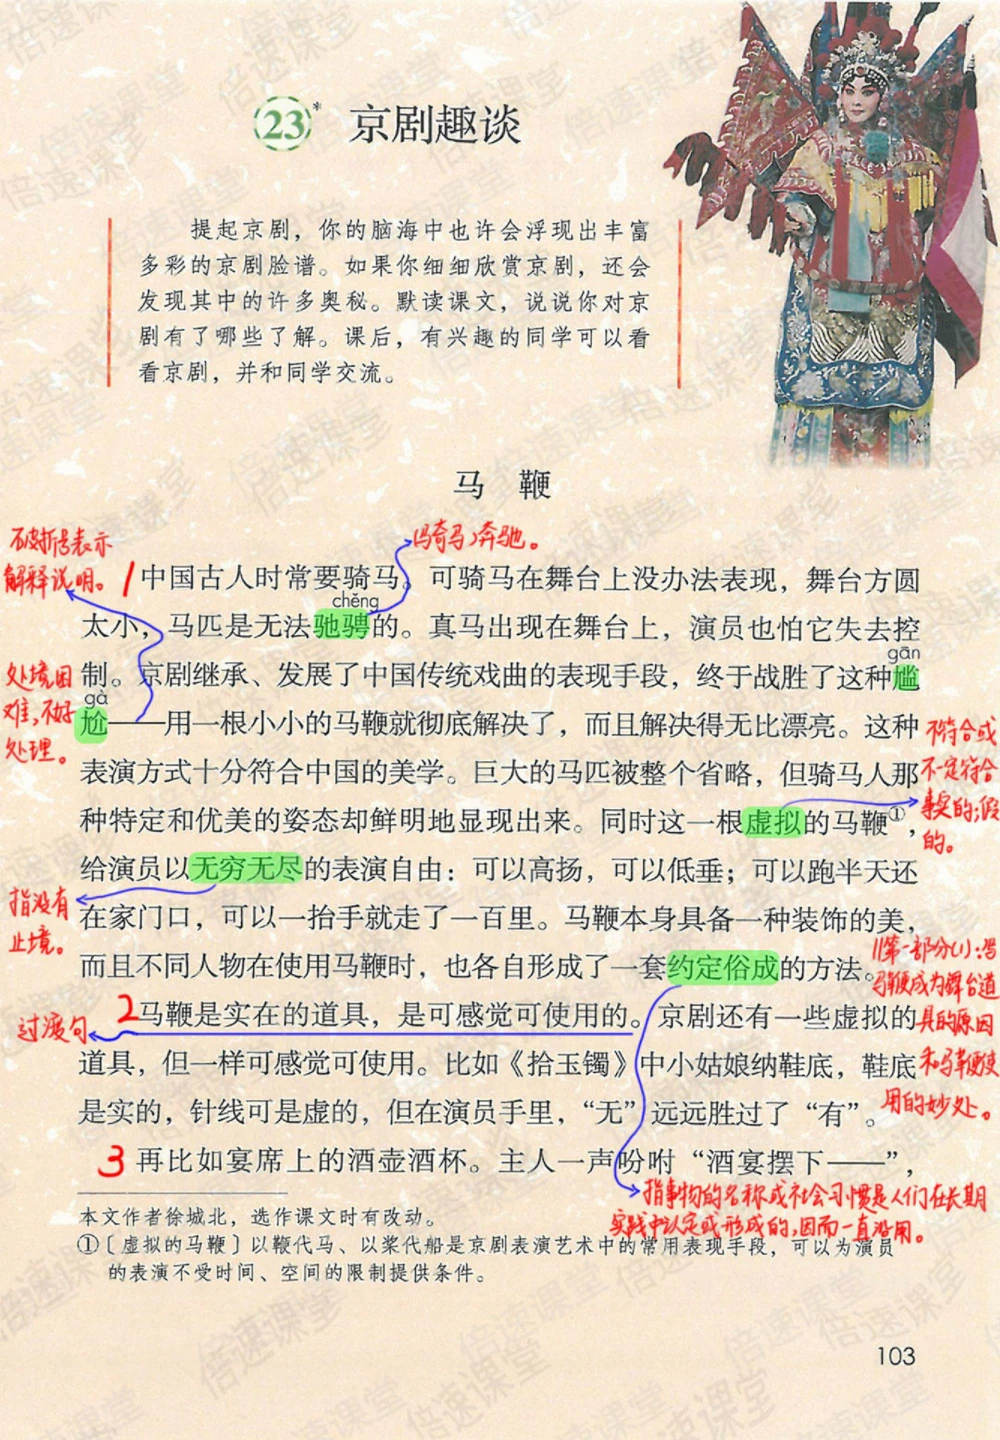 23* 京剧趣谈
提起京剧，你的脑海中也许会浮现出丰富
多彩的京剧脸谱。如果你细细欣赏京剧，还会
发现其中的许多奥秘。默读课文，说说你对京
剧有了哪些了解。课后，有兴趣的同学可以看
看京剧，并和同学交流。
马 鞭
破折号表示
解释说明。
(骑马)奔驰。
1 中国古人时常要骑马。可骑马在舞台上没办法表现，舞台方圆
chěng
太小，马匹是无法驰骋的。真马出现在舞台上，演员也怕它失去控
gān
制。京剧继承、发展了中国传统戏曲的表现手段，终于战胜了这种尴
gà
尬——用一根小小的马鞭就彻底解决了，而且解决得无比漂亮。这种
处境困
难，不好
处理。
表演方式十分符合中国的美学。巨大的马匹被整个省略，但骑马人那
种特定和优美的姿态却鲜明地显现出来。同时这一根虚拟的马鞭①，
不符合或
不定符合
事实的；假
的。
给演员以无穷无尽的表演自由：可以高扬，可以低垂；可以跑半天还
在家门口，可以一抬手就走了一百里。马鞭本身具备一种装饰的美，
指没有
止境。
而且不同人物在使用马鞭时，也各自形成了一套约定俗成的方法。
第一部分(1)：写
马鞭成为舞台道
具的原因
和马鞭使
用的妙处。
过渡句
2 马鞭是实在的道具，是可感觉可使用的。京剧还有一些虚拟的
道具，但一样可感觉可使用。比如《拾玉镯》中小姑娘纳鞋底，鞋底
是实的，针线可是虚的，但在演员手里，“无”远远胜过了“有”。
3 再比如宴席上的酒壶酒杯。主人一声吩咐“酒宴摆下——”，
指事物的名称或社会习惯是人们在长期
实践中认定或形成的，因而一直沿用。
本文作者徐城北，选作课文时有改动。
①〔虚拟的马鞭〕以鞭代马、以桨代船是京剧表演艺术中的常用表现手段，可以为演员
的表演不受时间、空间的限制提供条件。
103
倍速课堂